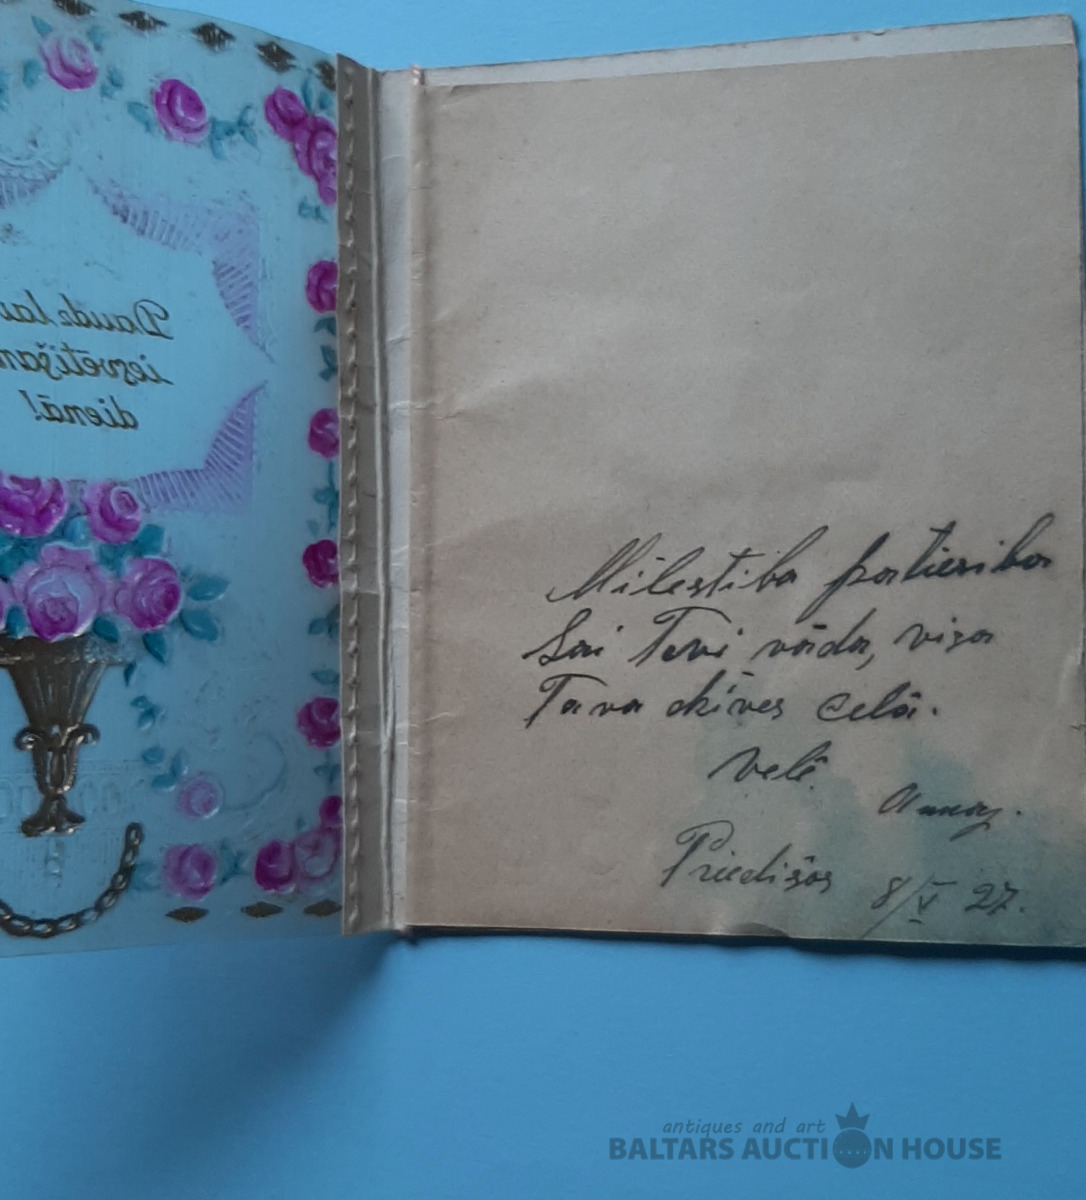 Daudz
iesvētīšan
dienā!
Milestiba patiesiba
Lai Tevi vāda, visa
Tava dzives celā.
velē
Priedišos 8/V 27.
antiques and art
BALTARS AUCTION HOUSE